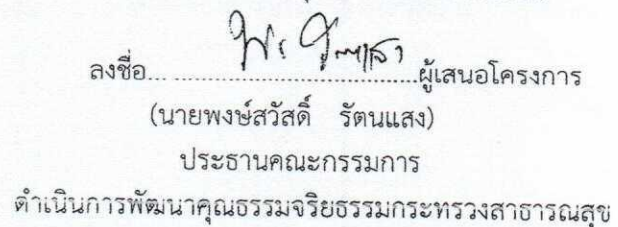 ลงชื่อ... ................................ผู้เสนอโครงการ
(นายพงษ์สวัสดิ์ รัตนแสง)
ประธานคณะกรรมการ
ดำเนินการพัฒนาคุณธรรมจริยธรรมกระทรวงสาธารณสุข